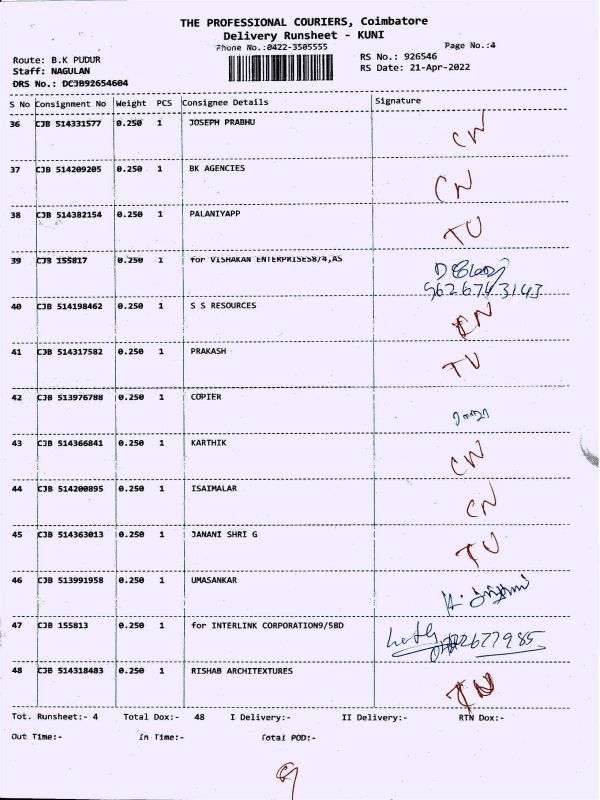 THE PROFESSIONAL COURIERS, Coimbatore
Delivery Runsheet - KUNI
Phone No.:0422-3505555
Page No.:4
Route: B.K PUDUR
RS No.: 926546
Staff: NAGULAN
RS Date: 21-Apr-2022
DRS No.: DCJB92654604
S No Consignment No Weight PCS Consignee Details Signature
36 CJB 514331577 0.250 1 JOSEPH PRABHU CN
37 CJB 514209205 0.250 1 BK AGENCIES CN
38 CJB 514382154 0.250 1 PALANIYAPP TU
39 CJB 155817 0.250 1 for VISHAKAN ENTERPRISES8/4,AS
9626743143
40 CJB 514198462 0.250 1 S S RESOURCES CN
41 CJB 514317582 0.250 1 PRAKASH TU
42 CJB 513976788 0.250 1 COPIER
43 CJB 514366841 0.250 1 KARTHIK CN
44 CJB 514200895 0.250 1 ISAIMALAR CN
45 CJB 514363013 0.250 1 JANANI SHRI G TU
46 CJB 513991958 0.250 1 UMASANKAR
47 CJB 155813 0.250 1 for INTERLINK CORPORATION9/58D
48 CJB 514318483 0.250 1 RISHAB ARCHITEXTURES
Tot. Runsheet:- 4 Total Dox:- 48 I Delivery:- II Delivery:- RTN Dox:-
Out Time:- In Time:- Total POD:-